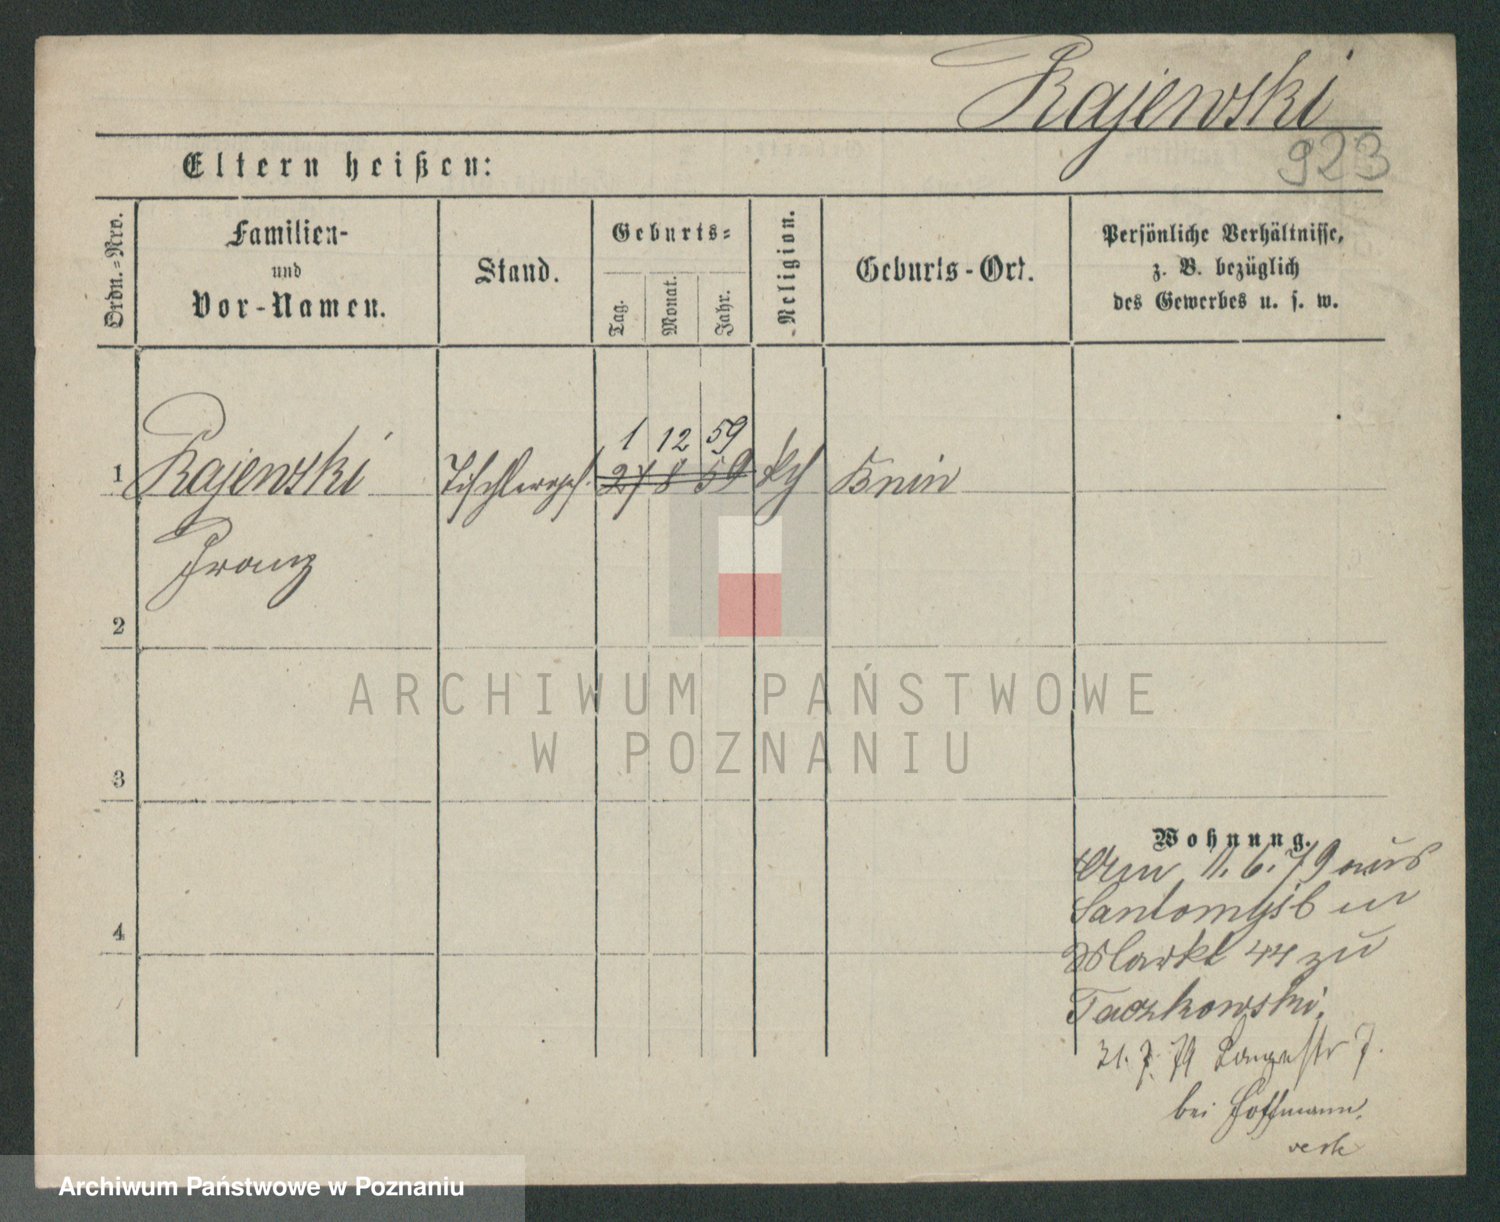 Rajewski
923
Eltern heißen:
Ordn.=Nro.
Familien-
und
Vor-Namen.
Stand.
Geburts=
Tag.
Monat.
Jahr.
Religion.
Geburts-Ort.
Persönliche Verhältnisse,
z. B. bezüglich
des Gewerbes u. s. w.
1 12 59
1 Rajewski Tischlerges. 27 8 59 kth Knin
Franz
2
3
4
Wohnung.
Am 11.6.79 aus
Santomysl in
Markt 44 zu
Taczkowski.
31.7.79 Langestr 7.
bei Hoffmann.
ARCHIWUM PAŃSTWOWE
W POZNANIU
Archiwum Państwowe w Poznaniu